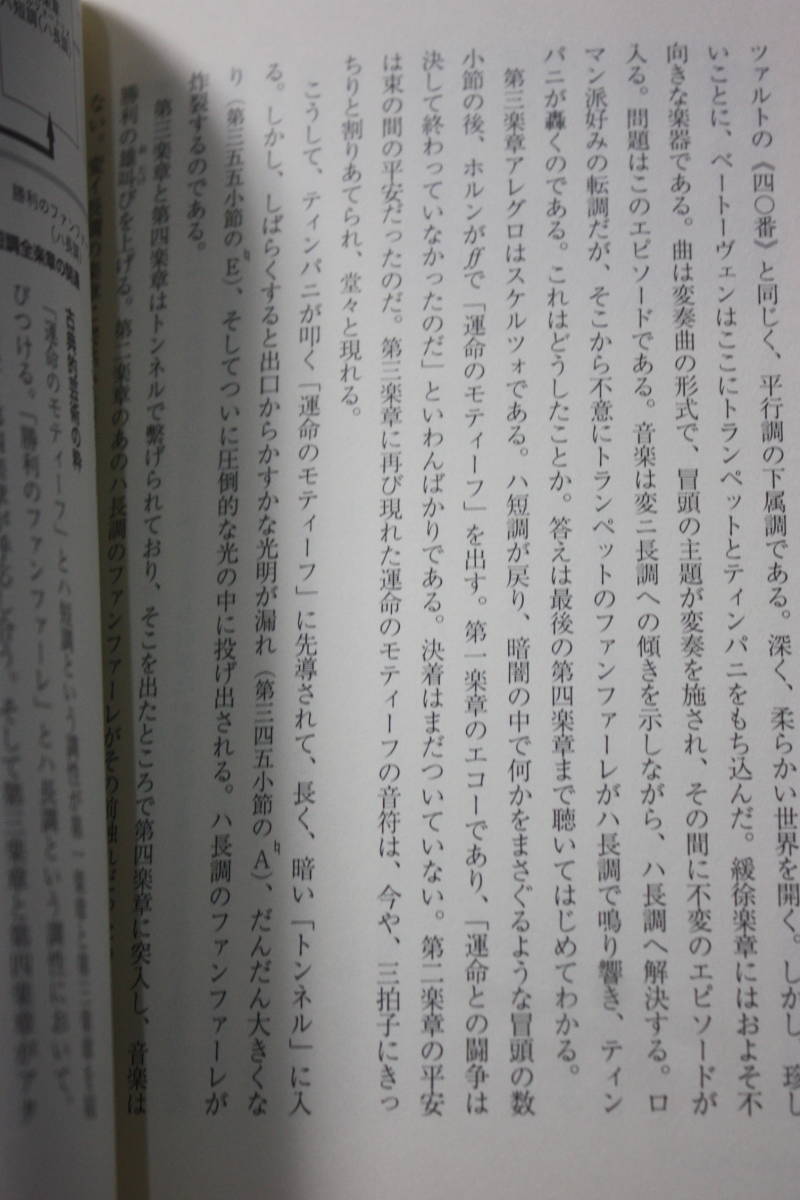 ツァルトの《四〇番》と同じく、平行調の下属調である。深く、柔らかい世界を開く。しかし、珍し
いことに、ベートーヴェンはここにトランペットとティンパニをもち込んだ。緩徐楽章にはおよそ不
向きな楽器である。曲は変奏曲の形式で、冒頭の主題が変奏を施され、その間に不変のエピソードが
入る。問題はこのエピソードである。音楽は変ニ長調への傾きを示しながら、ハ長調へ解決する。ロ
マン派好みの転調だが、そこから不意にトランペットのファンファーレがハ長調で鳴り響き、ティン
パニが轟くのである。これはどうしたことか。答えは最後の第四楽章まで聴いてはじめてわかる。
第三楽章アレグロはスケルツォである。ハ短調が戻り、暗闇の中で何かをまさぐるような冒頭の数
小節の後、ホルンがffで「運命のモティーフ」を出す。第一楽章のエコーであり、「運命との闘争は
決して終わっていなかったのだ」といわんばかりである。決着はまだついていない。第二楽章の平安
は束の間の平安だったのだ。第三楽章に再び現れた運命のモティーフの音符は、今や、三拍子にきっ
ちりと割りあてられ、堂々と現れる。
こうして、ティンパニが叩く「運命のモティーフ」に先導されて、長く、暗い「トンネル」に入
る。しかし、しばらくすると出口からかすかな光明が漏れ（第三四五小節の♮A）、だんだん大きくな
り（第三五五小節の♮E）、そしてついに圧倒的な光の中に投げ出される。ハ長調のファンファーレが
炸裂するのである。
第三楽章と第四楽章はトンネルで繋げられており、そこを出たところで第四楽章に突入し、音楽は
勝利の雄叫びを上げる。第二楽章のあのハ長調のファンファーレがその前触れ
おたけ
ない。
ハ短調（ハ長調）
勝利のファンファ
（ハ長調）
短調全楽章の関連
「運命のモティーフ」とハ短調という調性が第一楽章と第三楽章を結
びつける。「勝利のファンファーレ」とハ長調という調性において、
そして第三楽章と第四楽章がアタ